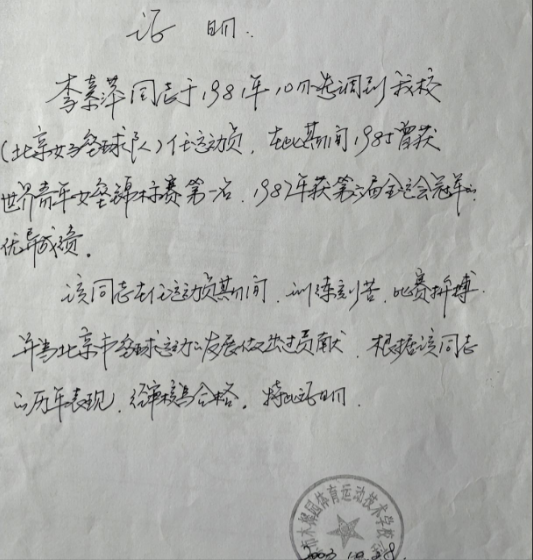 证明.
李慕萍同志于1981年10月选调到我校
(北京女子垒球队)任运动员,在此期间1985曾获
世界青年女垒锦标赛第一名,1987年获第六届全运会冠军的
优异成绩。
该同志在任运动员其间,训练刻苦,比赛拼搏.
并为北京市垒球运动的发展做出过贡献,根据该同志
的历年表现,经审核为合格。特此证明.
市木樨园体育运动技术学校
2003.10.28